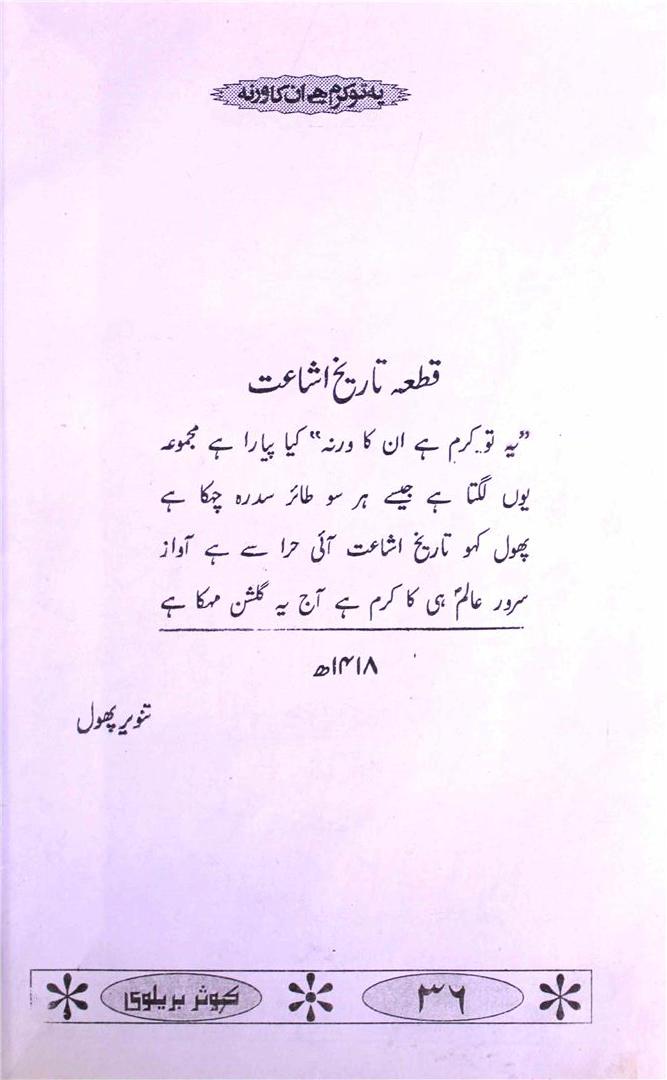 یہ تو کرم ہے ان کا ورنہ
قطعہ تاریخ اشاعت
”یہ تو کرم ہے ان کا ورنہ“ کیا پیارا ہے مجموعہ
یوں لگتا ہے جیسے ہر سو طائر سدرہ چہکا ہے
پھول کہو تاریخ اشاعت آئی حرا سے ہے آواز
سرور عالمؐ ہی کا کرم ہے آج یہ گلشن مہکا ہے
۱۴۱۸ھ
تنویر پھول
۳۶
کوثر بریلوی